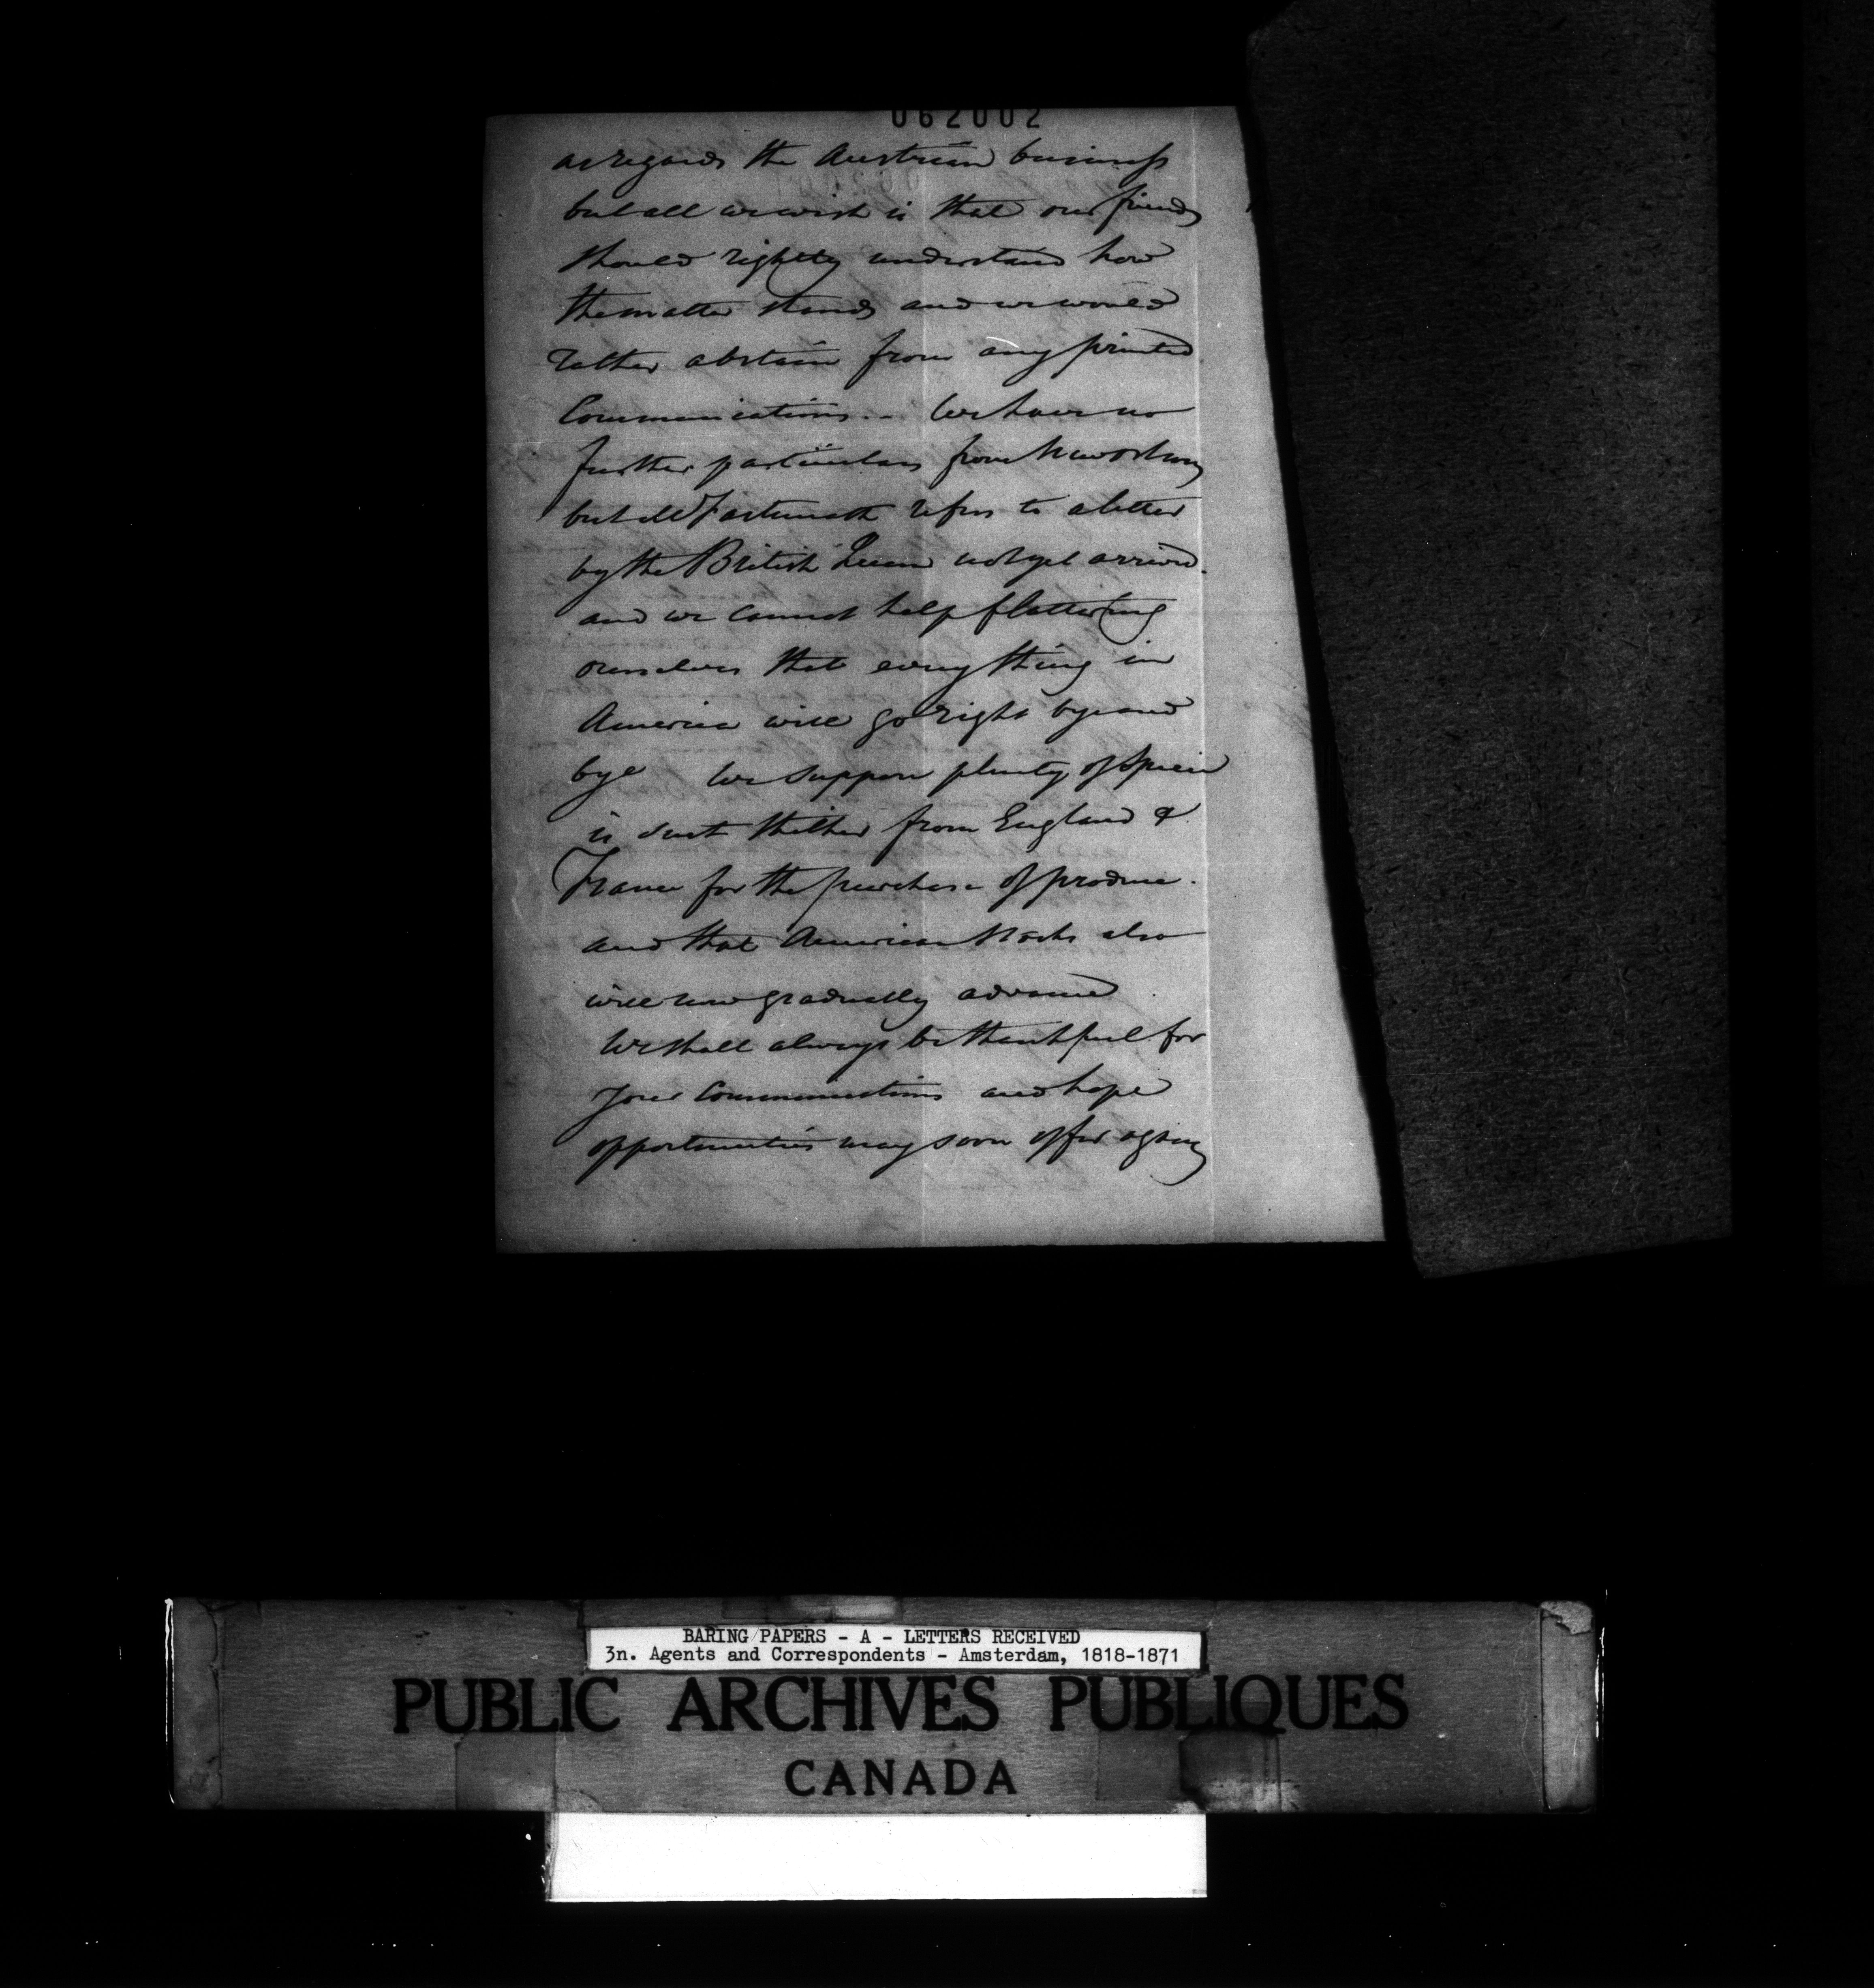 062002
as regards the Austrian business
but all we wish is that our friends
should rightly understand how
the matter stands and we would
rather abstain from any printed
Communications.. We have no
further particulars from
but refers to a letter
by the British Queen not yet arrived.
and we cannot help flattering
ourselves that every thing in
America will go right bye and
bye We suppose plenty of Specie
is sent thither from England &
France for the purchase of produce.
and that American Stocks also
will now gradually advance
We shall always be thankful for
your Communications and hope
opportunities may soon offer again
BARING PAPERS - A - LETTERS RECEIVED
3n. Agents and Correspondents - Amsterdam, 1818-1871
PUBLIC ARCHIVES PUBLIQUES
CANADA